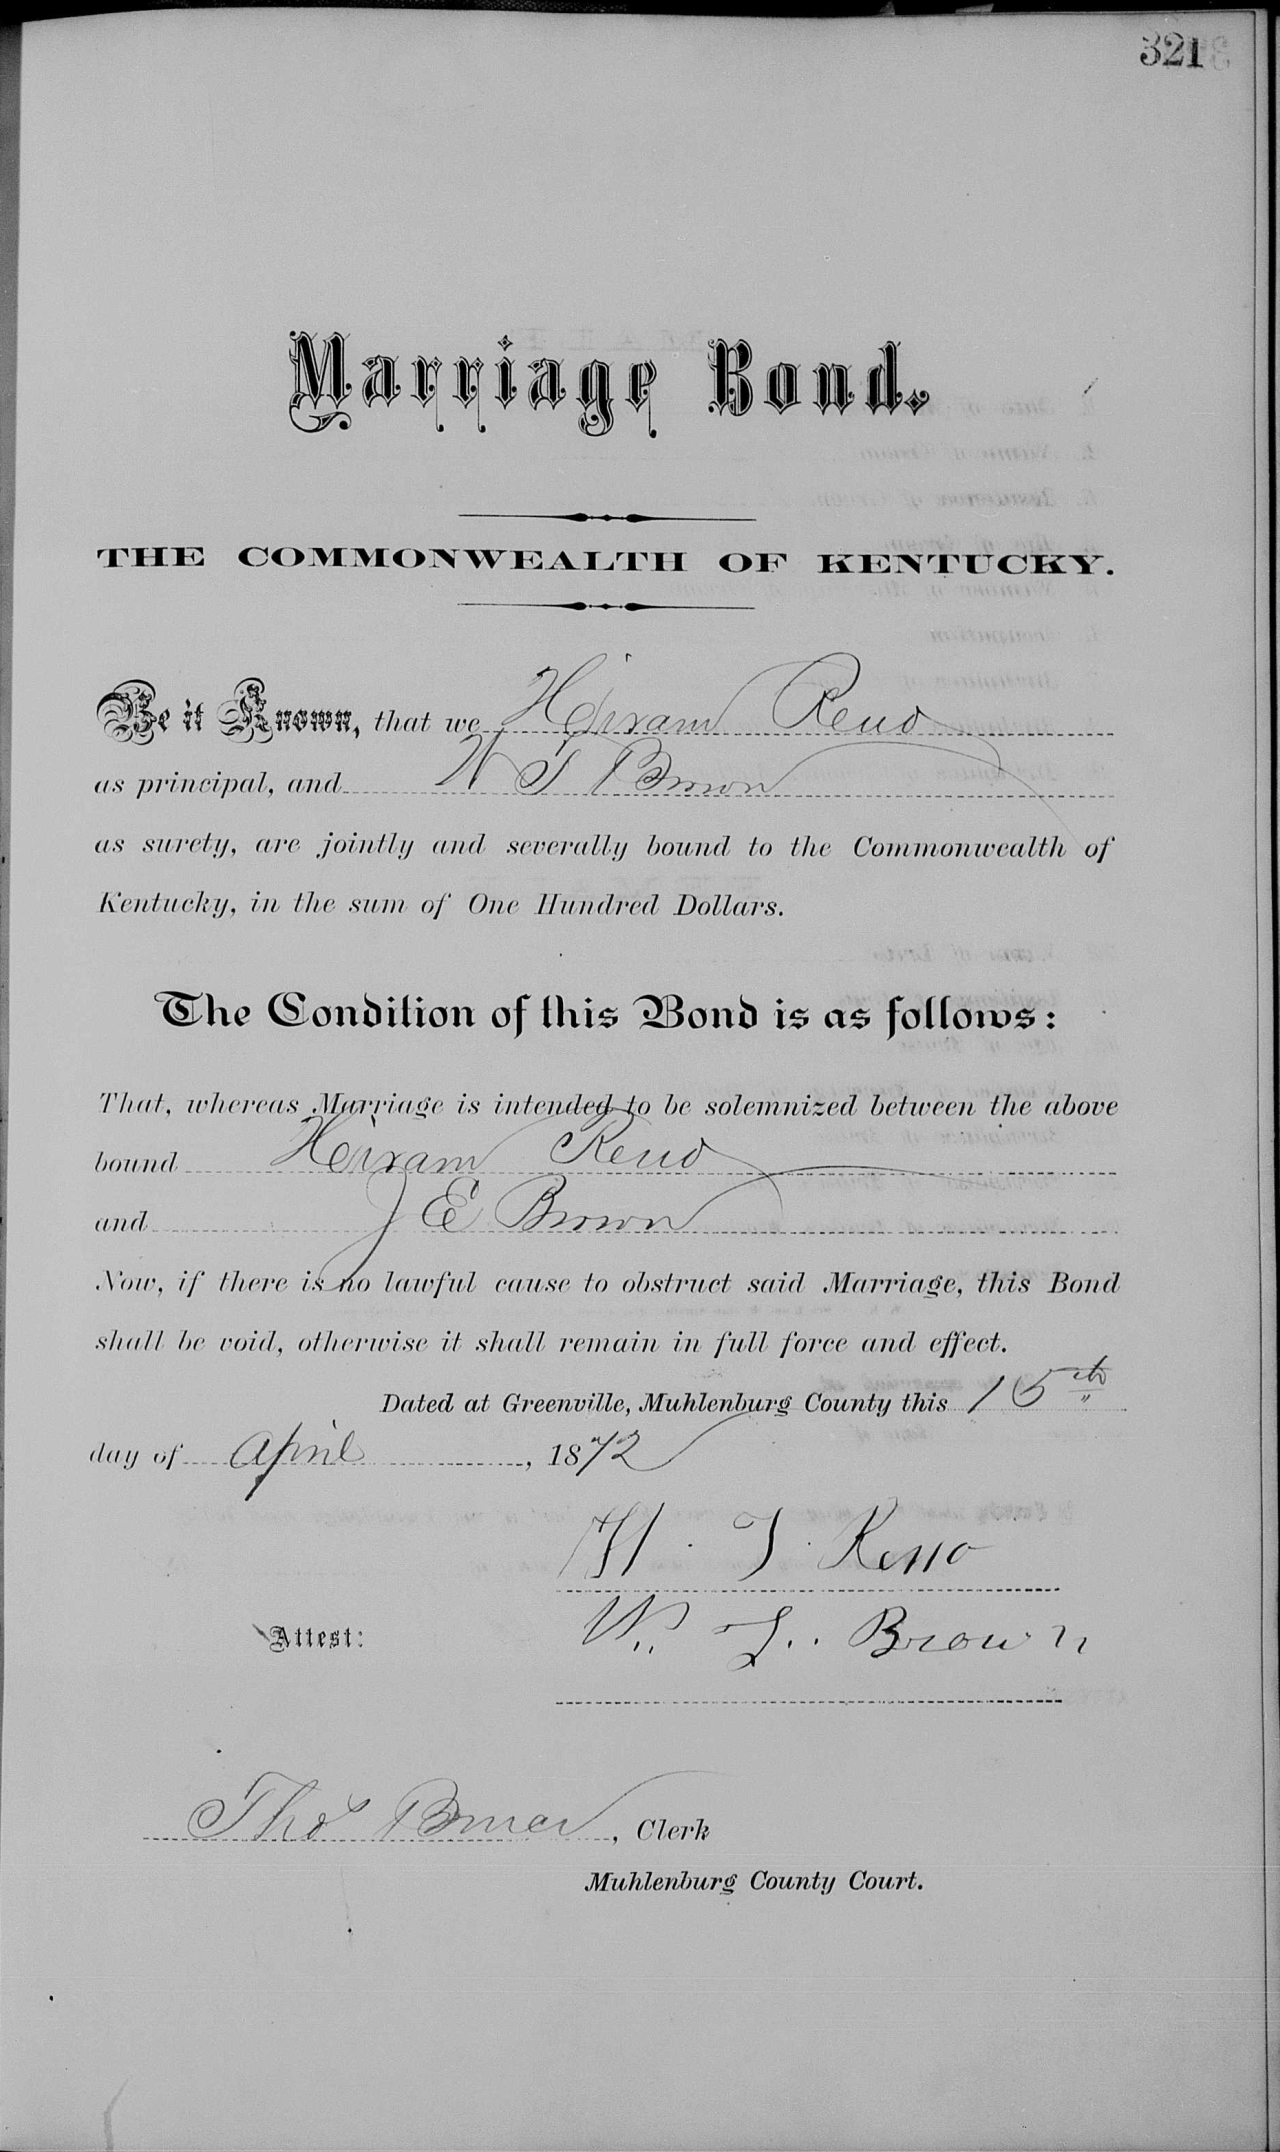 321
Marriage Bond.
THE COMMONWEALTH OF KENTUCKY.
Be it Known, that we Hiram Reno
as principal, and W T Brown
as surety, are jointly and severally bound to the Commonwealth of
Kentucky, in the sum of One Hundred Dollars.
The Condition of this Bond is as follows:
That, whereas Marriage is intended to be solemnized between the above
bound Hiram Reno
and J E Brown
Now, if there is no lawful cause to obstruct said Marriage, this Bond
shall be void, otherwise it shall remain in full force and effect.
Dated at Greenville, Muhlenburg County this 15th
day of April, 1872
H. T. Reno
Attest: W. T. Brown
Thos Bruer, Clerk
Muhlenburg County Court.